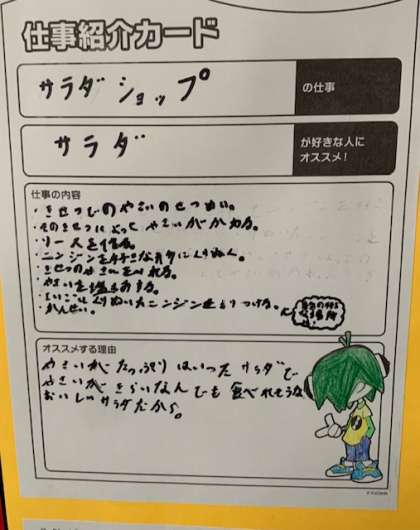 仕事紹介カード
サラダショップ
の仕事
サラダ
が好きな人に
オススメ!
仕事の内容
・きせつのやさいのせつめい。
・そのきせつによって やさいがかわる。
・リースを作る。
・ニンジンを好きな
・きせつのやさいを入れる。
・やさいを
ニンジンをもりつける。
・かんせい。
オススメする理由
やさいがたっぷりはいったサラダで
やさいがきらいなんでも食べれそうな
おいしいサラダだから。